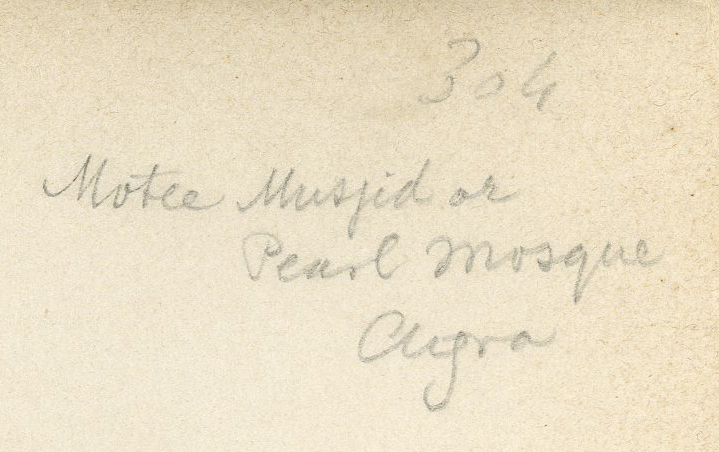 304
Motee Musjid or
Pearl Mosque
Agra